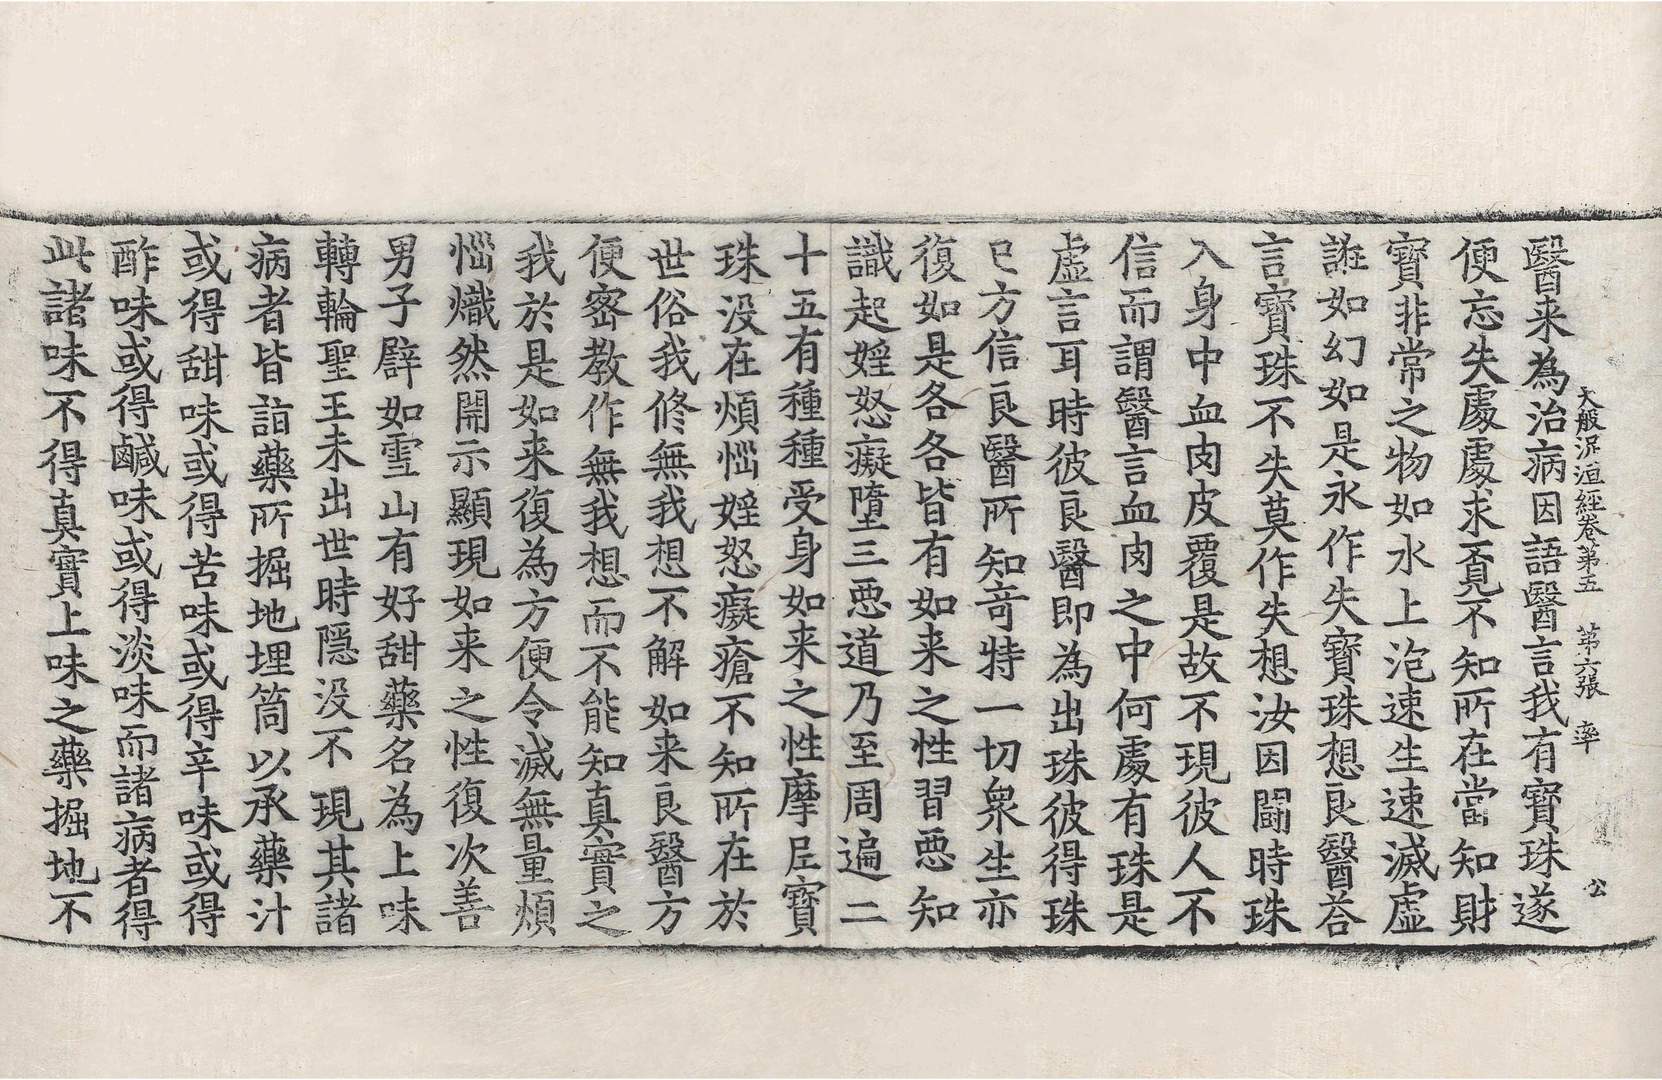 大般泥洹經卷第五　第六張　率
公
醫来為治病因語醫言我有寶珠遂
便忘失處處求覔不知所在當知財
寶非常之物如水上泡速生速滅虛
誑如幻如是永作失寶珠想良醫荅
言寶珠不失莫作失想汝因鬪時珠
入身中血肉皮覆是故不現彼人不
信而謂醫言血肉之中何處有珠是
虛言耳時彼良醫即為出珠彼得珠
已方信良醫所知竒特一切衆生亦
復如是各各皆有如来之性習惡知
識起婬怒癡墮三惡道乃至周遍二
十五有種種受身如来之性摩尼寶
珠没在煩惱婬怒癡瘡不知所在於
世俗我修無我想不解如来良醫方
便密教作無我想而不能知真實之
我於是如来復為方便令滅無量煩
惱熾然開示顯現如来之性復次善
男子譬如雪山有好甜藥名為上味
轉輪聖王未出世時隱没不現其諸
病者皆詣藥所掘地埋筒以承藥汁
或得甜味或得苦味或得辛味或得
酢味或得鹹味或得淡味而諸病者得
此諸味不得真實上味之藥掘地不